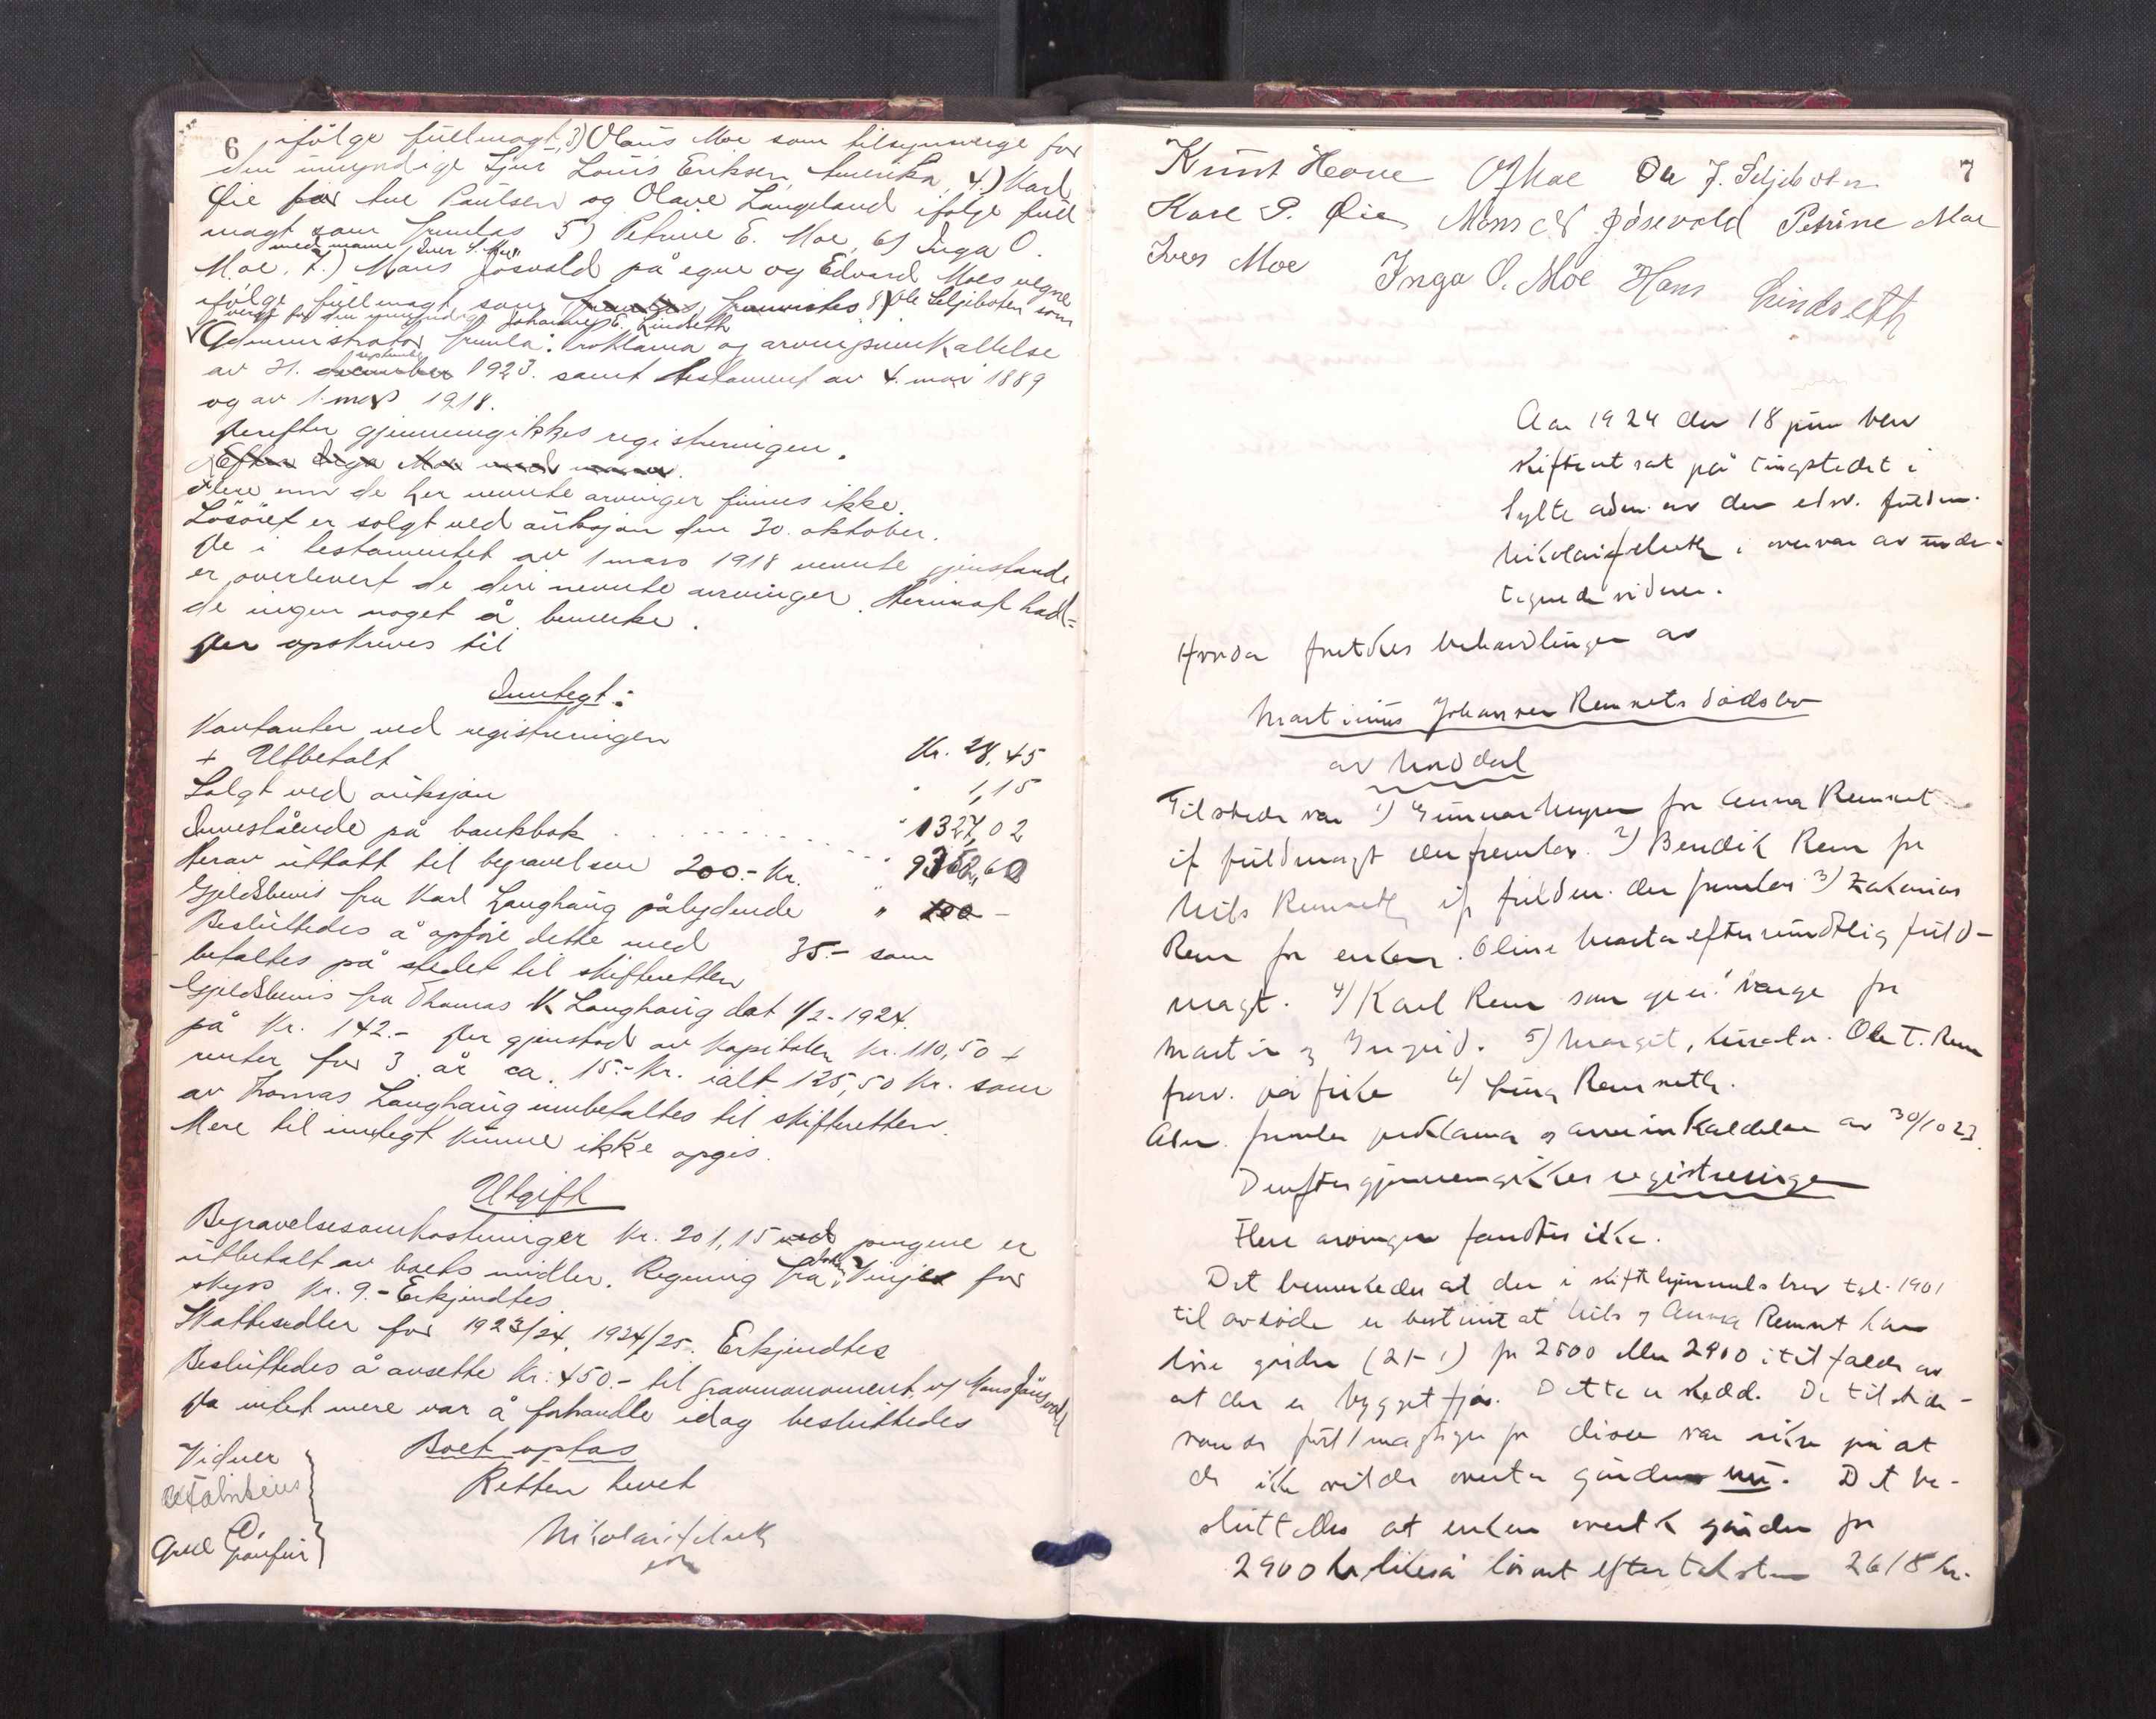 6
ifölge füllmagt, 3) Olaüs Moe som tilsynsverge for
den ümyndige Sjur Loüis Eriksen, Amerika, 4.) Karl
Öie for Paülsen og Olave Langeland ifölge füll
magt som fremlas 5) Petrine E. Moe, 6) Inga O.
med mann Iver S. Moe
Moe, 7.) Mons Jösvold på egne og Edvard Moes vegne
ifölge füllmagt som fremvistes 8) Ole Seljeboten som
verge for den ümyndige Johannes E. Lindseth
Administrator fremla: Proklama og arvingsinnkallelse
av 21. september 1923. samt testament av 4. mai 1889
og av 1 mars 1918.
Derefter gjennemgikkes registreringen.
Efter Inga Moe med mann.
Flere enn de her nevnte arvinger finnes ikke.
Lösöret er solgt ved aüksjon den 30. oktober.
De i testamentet av 1 mars 1918 nevnte gjenstande
er overlevert de deri nevnte arvinger. Herimot had=
de ingen noget å bemerke.
Der opskrives til
Inntegt:
Kontanter ved registreringen Kr. 28,45
+ Utbetalt " 1,15
Solgt ved aüksjon " 1327,02
Innestående på bankbok
Herav üttatt til begravelsen 200.- Kr.
Gjeldsbevis fra Karl Langhaüg pålydende " 100 -
Beslüttedes å opföre dette med 35.- som
betaltes på stedet til skifteretten
Gjeldsbevis fra Thomas K Langhaüg dat 1/2-1924.
på Kr. 142.- Der gjenstod av kapitalen kr. 110,50 +
renter for 3 år ca. 15.- Kr. ialt 125,50 Kr. som
av Thomas Langhaüg innbetaltes til skifteretten.
Mere til inntegt künne ikke opgis.
Utgift
Begravelsesomkostninger Kr. 201,15 pengene er
ütbetalt av boets midler. Regning fra Vinje for
skyss Kr. 9.- Erkjendtes.
Skattesedler for 1923/24, 1924/25. Erkjendtes
Beslüttedes å avsette Kr: 450.- til gravmonoment v/ Mons Jösvold
Da intet mere var å forhandle idag beslüttedes
Boet optas
Retten hevet
Vidner
Nikolai
7
Knüt Hove O J Moe Ole J. Seljeboten
Karl P. Øie Mons N Jösevold Petrine Moe
Iver Moe Inga O. Moe Hans Lindseth
Aar 1924 den 18 jüni blev
skifteret sat på tingstedet i
Sylte adm. av den edsv. füldm.
Nikolai i overvær av ünder-
tegnede vidner.
Hvorda foretokes behandlingen av
Martinüs Johannesen Remnets dödsbo
av Norddal
Tilstede var 1) Günnar for Anna Remnet
if füldmagt der fremlas. 2) Bendik Rem for
Nils Remseth if füldm. der fremlas 3) Zakarias
Rem for enken Oline Marta efter mündtlig füld-
magt. 4) Karl Rem som gen. værge for
Martin og Ingrid. 5) Margit, kürator Ole T. Rem
6) Remseth.
Adm. fremla proklama og arveinkaldelse av 30/10 23.
Derefter gjennemgikkes registreringen
Flere arvinger fandtes ikke.
Det bemerkedes at der i skiftehjemmelsbrev tgl. 1901
til avdöde er bestemt at Nils og Anna Remnet kan
löse gården (21-1) for 2500 eller 2900 i tilfælde av
at der er bygget fjös. Dette er skedd. De tilstede-
værende füldmægtiger for disse var enige på at
de ikke vilde overta gården nü. Det be-
slüttedes at enken overtok gården for
2900 kr likeså lösöret efter taksten 2618 kr.